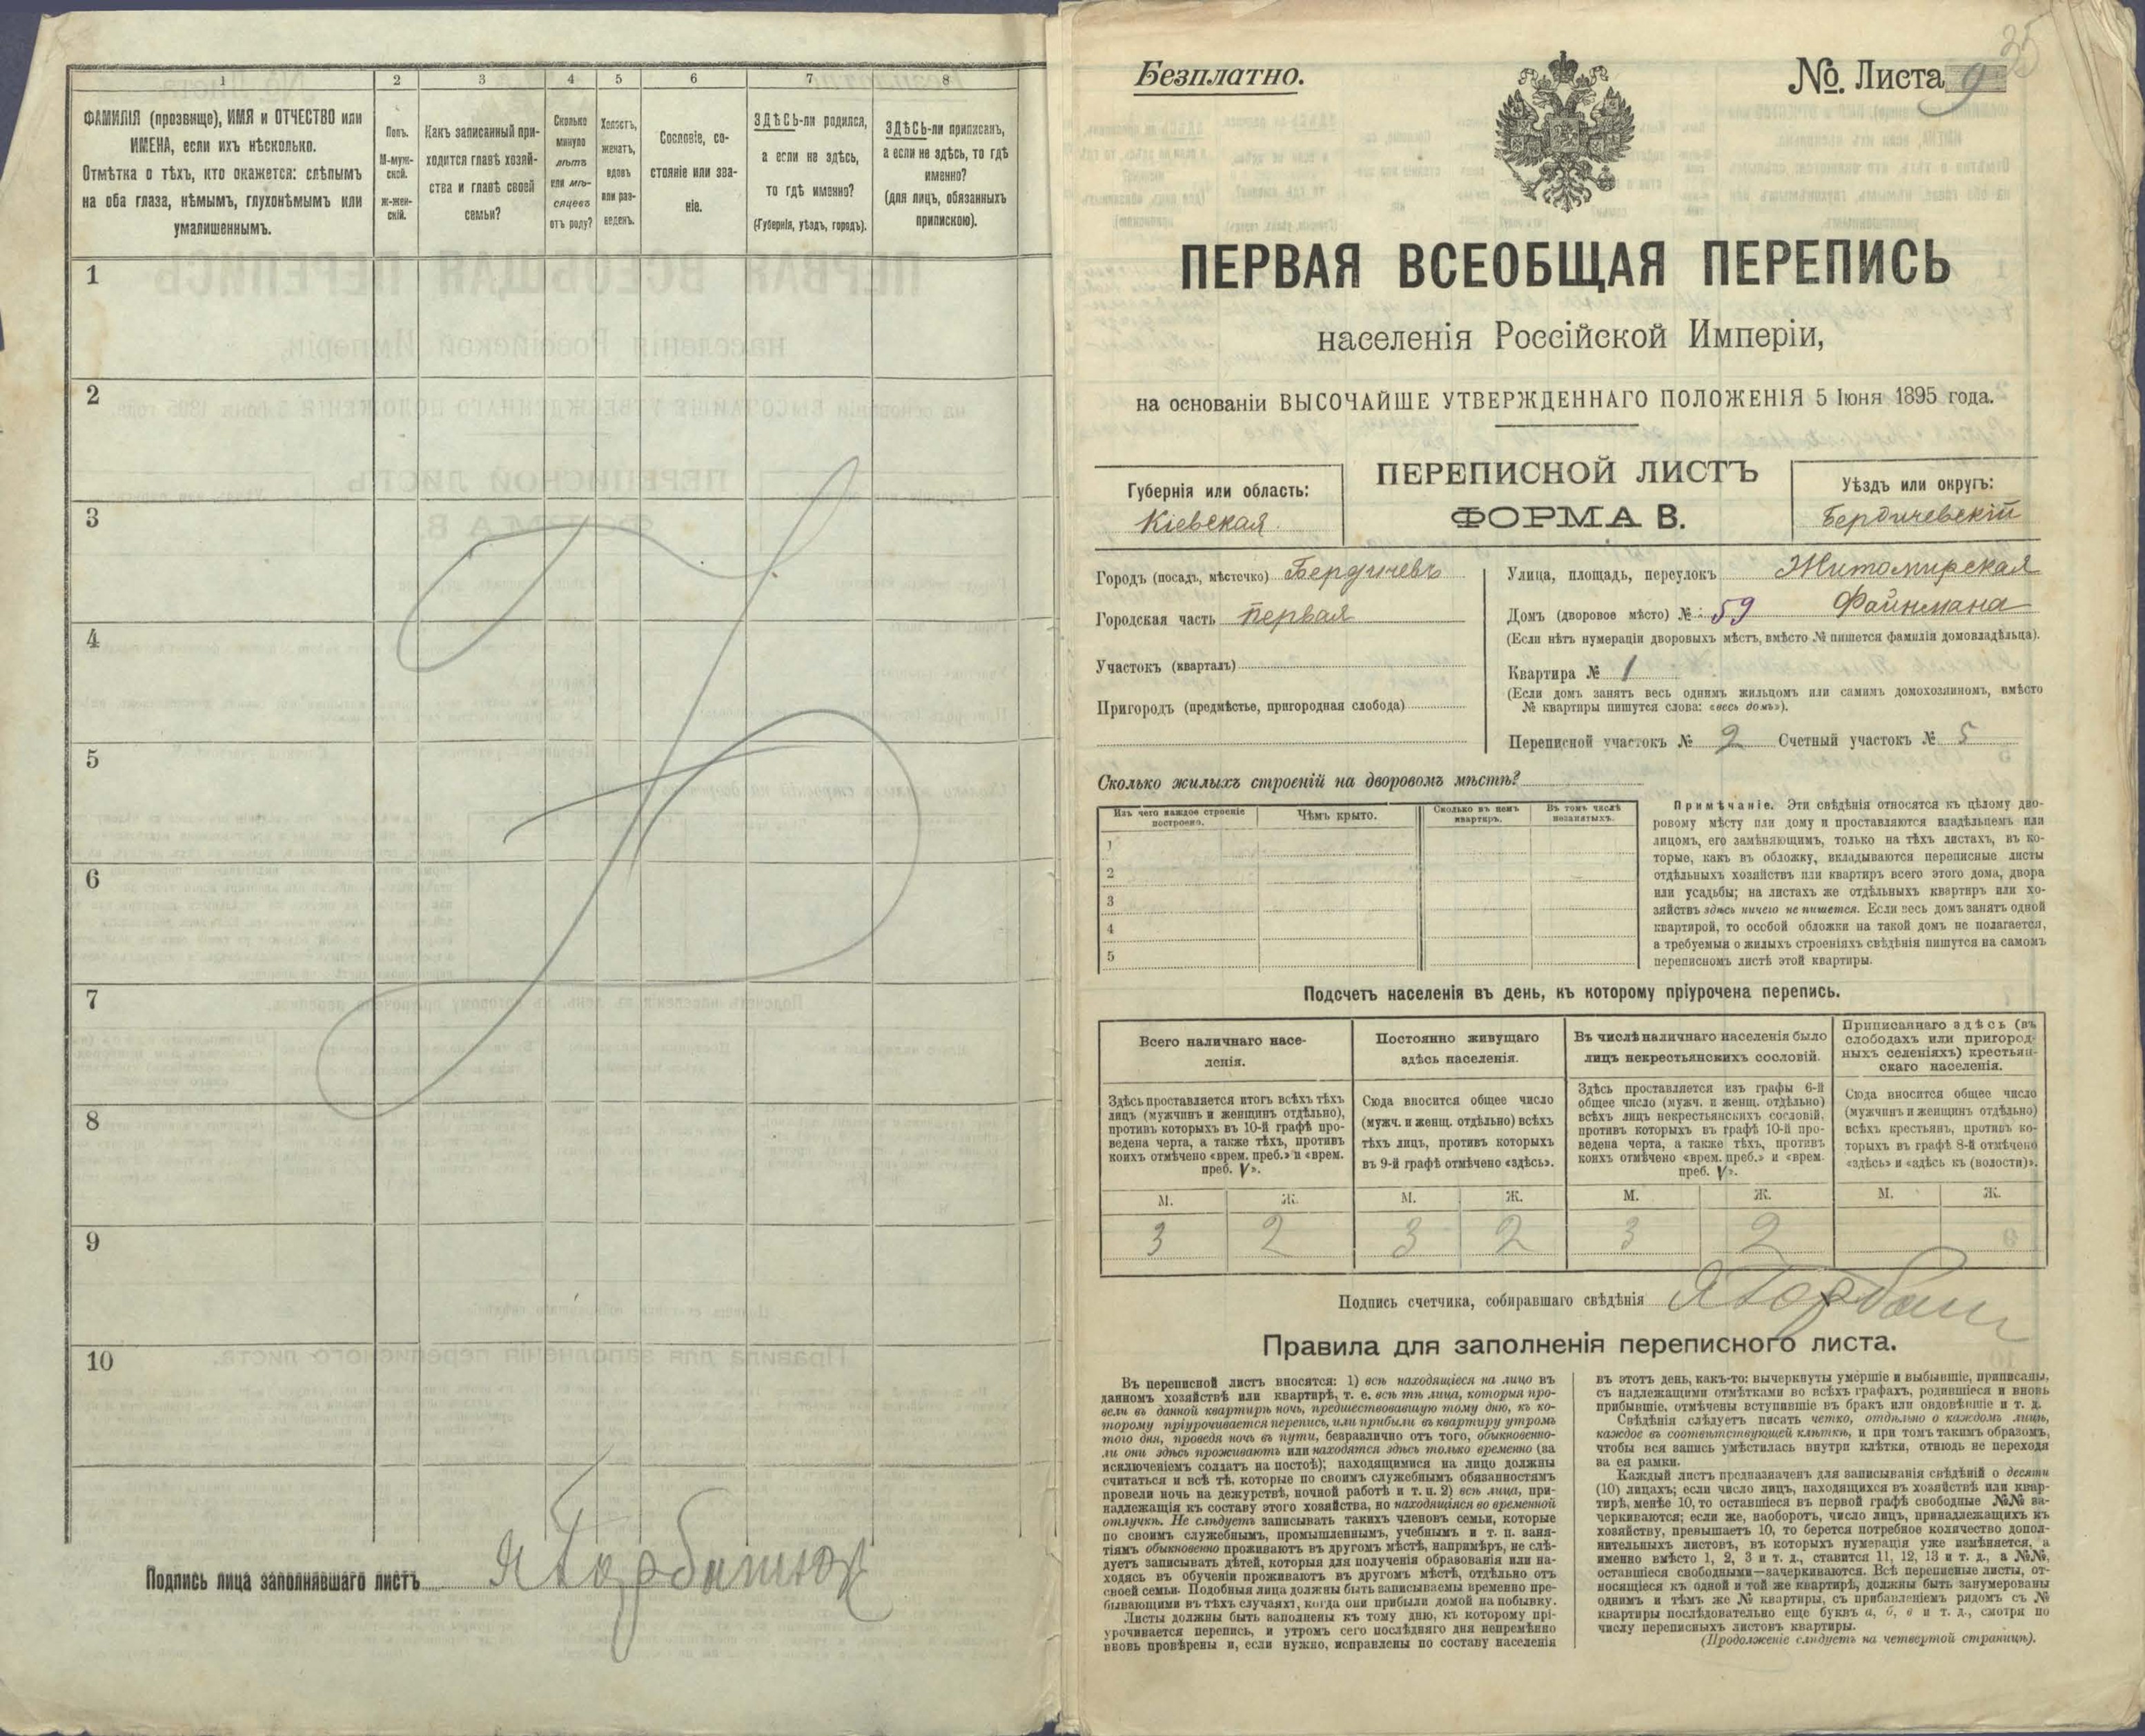 1
2
3
4
5
6
7
8
ФАМИЛІЯ (прозвище), ИМЯ и ОТЧЕСТВО или
ИМЕНА, если ихъ нѣсколько.
Отмѣтка о тѣхъ, кто окажется: слѣпымъ
на оба глаза, нѣмымъ, глухонѣмымъ или
умалишеннымъ.
Полъ.
М-муж-
ской.
Ж-жен-
скій.
Какъ записанный при-
ходится главѣ хозяй-
ства и главѣ своей
семьи?
Сколько
минуло
лѣтъ
или мѣ-
сяцевъ
отъ роду?
Холостъ,
женатъ,
вдовъ
или раз-
веденъ.
Сословіе, со-
стояніе или зва-
ніе.
ЗДѢСЬ-ли родился,
а если не здѣсь,
то гдѣ именно?
(Губернія, уѣздъ, городъ).
ЗДѢСЬ-ли приписанъ,
а если не здѣсь, то гдѣ
именно?
(для лицъ, обязанныхъ
припискою).
1
2
3
4
5
6
7
8
9
10
Подпись лица заполнявшаго листъ
35
Безплатно.
№. Листа 9
ПЕРВАЯ ВСЕОБЩАЯ ПЕРЕПИСЬ
населенія Россійской Имперіи,
на основаніи ВЫСОЧАЙШЕ УТВЕРЖДЕННАГО ПОЛОЖЕНІЯ 5 Іюня 1895 года.
Губернія или область:
Кіевская
ПЕРЕПИСНОЙ ЛИСТЪ
ФОРМА В.
Уѣздъ или округъ:
Бердичевскій
Городъ (посадъ, мѣстечко) Бердичевъ
Городская часть первая
Участокъ (кварталъ)
Пригородъ (предмѣстье, пригородная слобода)
Улица, площадь, переулокъ Житомирская
Домъ (дворовое мѣсто) №: 59 Файнмана
(Если нѣтъ нумераціи дворовыхъ мѣстъ, вмѣсто № пишется фамилія домовладѣльца).
Квартира № 1
(Если домъ занятъ весь однимъ жильцомъ или самимъ домохозяиномъ, вмѣсто
№ квартиры пишутся слова: «весь домъ»).
Переписной участокъ № 2 Счетный участокъ № 5
Сколько жилыхъ строеній на дворовомъ мѣстѣ?
Изъ чего каждое строеніе
построено.
Чѣмъ крыто.
Сколько въ немъ
квартиръ.
Въ томъ числѣ
незанятыхъ.
1
2
3
4
5
Примѣчаніе. Эти свѣдѣнія относятся къ цѣлому дво-
ровому мѣсту или дому и проставляются владѣльцемъ или
лицомъ, его замѣняющимъ, только на тѣхъ листахъ, въ ко-
торые, какъ въ обложку, вкладываются переписные листы
отдѣльныхъ хозяйствъ или квартиръ всего этого дома, двора
или усадьбы; на листахъ же отдѣльныхъ квартиръ или хо-
зяйствъ здѣсь ничего не пишется. Если весь домъ занятъ одной
квартирой, то особой обложки на такой домъ не полагается,
а требуемыя о жилыхъ строеніяхъ свѣдѣнія пишутся на самомъ
переписномъ листѣ этой квартиры.
Подсчетъ населенія въ день, къ которому пріурочена перепись.
Всего наличнаго насе-
ленія.
Постоянно живущаго
здѣсь населенія.
Въ числѣ наличнаго населенія было
лицъ некрестьянскихъ сословій.
Приписаннаго здѣсь (въ
слободахъ или пригород-
ныхъ селеніяхъ) крестьян-
скаго населенія.
Здѣсь проставляется итогъ всѣхъ тѣхъ
лицъ (мужчинъ и женщинъ отдѣльно),
противъ которыхъ въ 10-й графѣ про-
ведена черта, а также тѣхъ, противъ
коихъ отмѣчено «врем. преб.» и «врем.
преб. V».
Сюда вносится общее число
(мужч. и женщ. отдѣльно) всѣхъ
тѣхъ лицъ, противъ которыхъ
въ 9-й графѣ отмѣчено «здѣсь».
Здѣсь проставляется изъ графы 6-й
общее число (мужч. и женщ. отдѣльно)
всѣхъ лицъ некрестьянскихъ сословій,
противъ которыхъ въ графѣ 10-й про-
ведена черта, а также тѣхъ, противъ
коихъ отмѣчено «врем. преб.» и «врем.
преб. V».
Сюда вносится общее число
(мужчинъ и женщинъ отдѣльно)
всѣхъ крестьянъ, противъ ко-
торыхъ въ графѣ 8-й отмѣчено
«здѣсь» и «здѣсь къ (волости)».
М. Ж. М. Ж. М. Ж. М. Ж.
3 2 3 2 3 2
Подпись счетчика, собиравшаго свѣдѣнія
Правила для заполненія переписного листа.
Въ переписной листъ вносятся: 1) всѣ находящіеся на лицо въ
данномъ хозяйствѣ или квартирѣ, т. е. всѣ тѣ лица, которыя про-
вели въ данной квартирѣ ночь, предшествовавшую тому дню, къ ко-
торому пріурочивается перепись, или прибыли въ квартиру утромъ
того дня, проведя ночь въ пути, безразлично отъ того, обыкновенно-
ли они здѣсь проживаютъ или находятся здѣсь только временно (за
исключеніемъ солдатъ на постоѣ); находящимися на лицо должны
считаться и всѣ тѣ, которые по своимъ служебнымъ обязанностямъ
провели ночь на дежурствѣ, ночной работѣ и т. п. 2) всѣ лица, при-
надлежащія къ составу этого хозяйства, но находящіяся во временной
отлучкѣ. Не слѣдуетъ записывать такихъ членовъ семьи, которые
по своимъ служебнымъ, промышленнымъ, учебнымъ и т. п. заня-
тіямъ обыкновенно проживаютъ въ другомъ мѣстѣ, напримѣръ, не слѣ-
дуетъ записывать дѣтей, которыя для полученія образованія или на-
ходясь въ обученіи проживаютъ въ другомъ мѣстѣ, отдѣльно отъ
своей семьи. Подобныя лица должны быть записываемы временно пре-
бывающими въ тѣхъ случаяхъ, когда они прибыли домой на побывку.
Листы должны быть заполнены къ тому дню, къ которому прі-
урочивается перепись, и утромъ сего послѣдняго дня непремѣнно
вновь провѣрены и, если нужно, исправлены по составу населенія
въ этотъ день, какъ-то: вычеркнуты умершіе и выбывшіе, приписаны,
съ надлежащими отмѣтками во всѣхъ графахъ, родившіеся и вновь
прибывшіе, отмѣчены вступившіе въ бракъ или овдовѣвшіе и т. д.
Свѣдѣнія слѣдуетъ писать четко, отдѣльно о каждомъ лицѣ,
каждое въ соотвѣтствующей клѣткѣ, и при томъ такимъ образомъ,
чтобы вся запись умѣстилась внутри клѣтки, отнюдь не переходя
за ея рамки.
Каждый листъ предназначенъ для записыванія свѣдѣній о десяти
(10) лицахъ; если число лицъ, находящихся въ хозяйствѣ или квар-
тирѣ, менѣе 10, то оставшіеся въ первой графѣ свободные №№ за-
черкиваются; если же, наоборотъ, число лицъ, принадлежащихъ къ
хозяйству, превышаетъ 10, то берется потребное количество допол-
нительныхъ листовъ, въ которыхъ нумерація уже измѣняется, а
именно вмѣсто 1, 2, 3 и т. д., ставится 11, 12, 13 и т. д., а №№,
оставшіеся свободными—зачеркиваются. Всѣ переписные листы, от-
носящіеся къ одной и той же квартирѣ, должны быть занумерованы
однимъ и тѣмъ же № квартиры, съ прибавленіемъ рядомъ съ №
квартиры послѣдовательно еще буквъ а, б, в и т. д., смотря по
числу переписныхъ листовъ квартиры.
(Продолженіе слѣдуетъ на четвертой страницѣ).